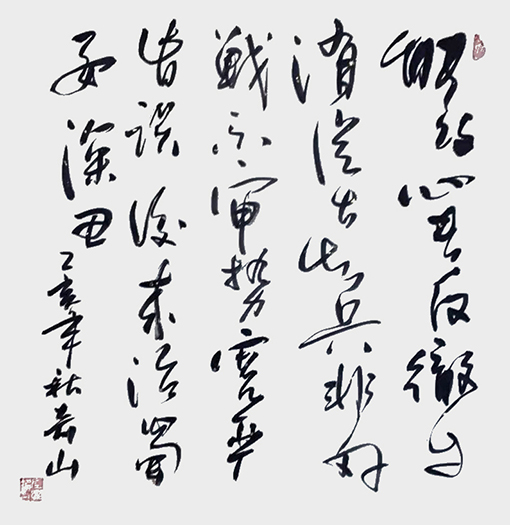 能攻心則反側自
消從古知兵非好
戰不審勢寬嚴
皆誤後來治蜀
要深思
己亥年秋 山